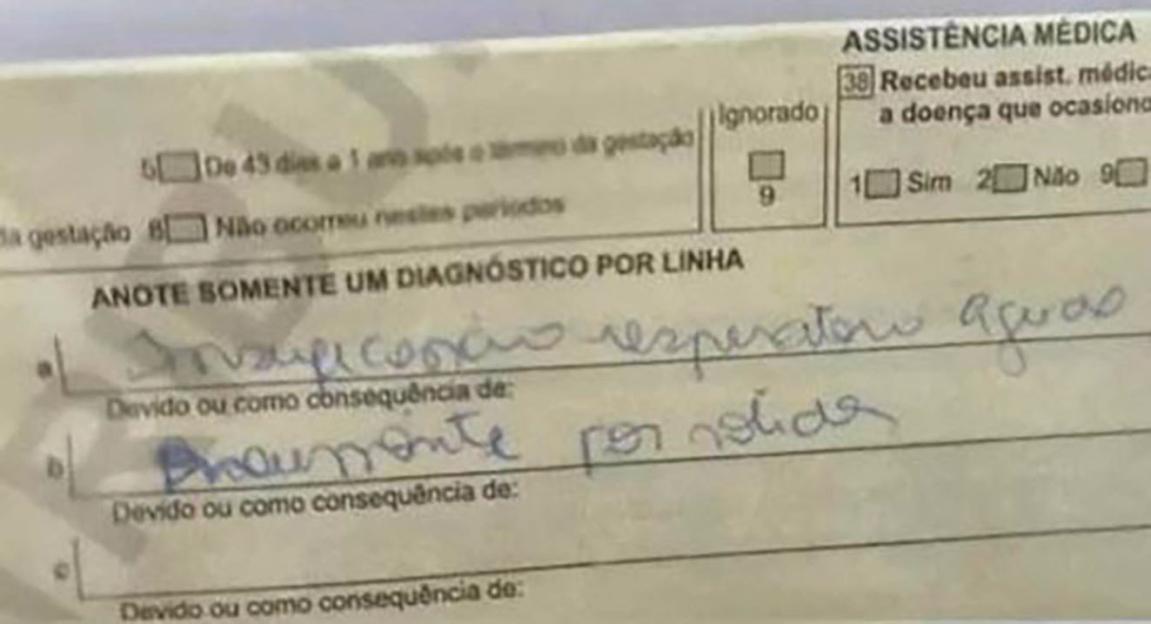 ASSISTÊNCIA MÉDICA
38 Recebeu assist. médica
a doença que ocasiono
5 De 43 dias a 1 ano após o término da gestação
Ignorado
9
1 Sim 2 Não 9
da gestação 8 Não ocorreu nestes períodos
ANOTE SOMENTE UM DIAGNÓSTICO POR LINHA
a respiratorio
Devido ou como consequência de:
b por
Devido ou como consequência de:
c
Devido ou como consequência de: